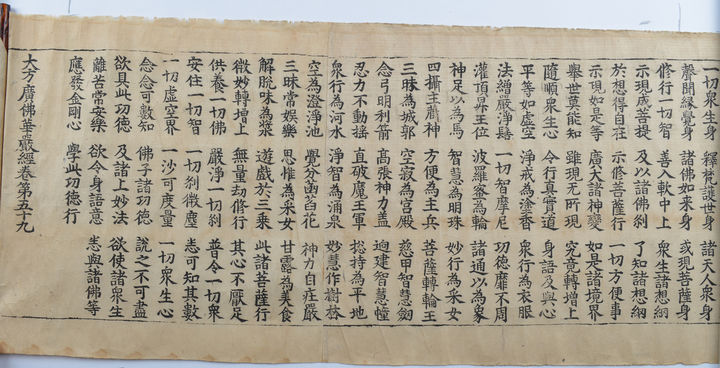 一切衆生身 釋梵護世身 諸天人衆身
聲聞緣覺身 諸佛如來身 或現菩薩身
修行一切智 善入軟中上 衆生諸想網
示現成菩提 及以諸佛刹 了知諸想網
於想得自在 示修菩薩行 一切方便事
示現如是等 廣大諸神變 如是諸境界
舉世莫能知 雖現无所現 究竟轉增上
隨順衆生心 令行真實道 身語及與心
平等如虛空 淨戒為塗香 衆行為衣服
法繒嚴淨髻 一切智摩尼 功德靡不周
灌頂昇王位 波羅蜜為輪 諸通以為象
神足以為馬 智慧為明珠 妙行為采女
四攝主藏神 方便為主兵 菩薩轉輪王
三昧為城郭 空寂為宮殿 慈甲智慧劔
念弓明利箭 高張神力盖 逈建智慧幢
忍力不動搖 直破魔王軍 揔持為平地
衆行為河水 淨智為涌泉 妙慧作樹林
空為澄淨池 覺分菡萏花 神力自莊嚴
三昧常娛樂 思惟為采女 甘露為美食
解脫味為漿 遊戲於三乘 此諸菩薩行
微妙轉增上 無量劫修行 其心不厭足
供養一切佛 嚴淨一切刹 普令一切衆
安住一切智 一切刹微塵 悉可知其數
一切虛空界 一沙可度量 一切衆生心
念念可數知 佛子諸功德 說之不可盡
欲具此功德 及諸上妙法 欲使諸衆生
離苦常安樂 欲令身語意 悉與諸佛等
應發金剛心 學此功德行
大方廣佛華嚴經卷第五十九